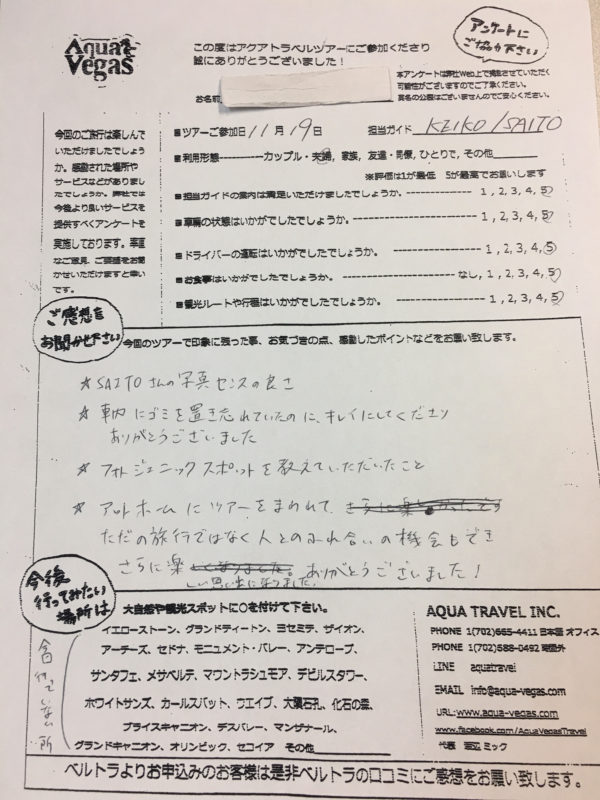 Aqua
Vegas
この度はアクアトラベルツアーにご参加くださり
誠にありがとうございました！
アンケートに
ご協力下さい
本アンケートは弊社Web上で掲載させていただく
可能性がございますのでご了承ください。
実名の公開はございませんのでご安心ください。
お名前
今回のご旅行は楽しんで
いただけましたでしょう
か。感動された場所や
サービスなどがありまし
たでしょうか。弊社では
今後より良いサービスを
提供すべくアンケートを
実施しております。率直
なご意見、ご要望をお聞
かせいただけますと幸い
です。
■ツアーご参加日 11月 19日 担当ガイド KEIKO/SAITO
■利用形態----------カップル・夫婦, 家族, 友達・同僚, ひとりで, その他
※評価は1が最低 5が最高でお願いします
■担当ガイドの案内は満足いただけましたでしょうか。 1, 2, 3, 4, 5
■車輌の状態はいかがでしたでしょうか。 1, 2, 3, 4, 5
■ドライバーの運転はいかがでしたでしょうか。 1, 2, 3, 4, 5
■お食事はいかがでしたでしょうか。 なし, 1, 2, 3, 4, 5
■観光ルートや行程はいかがでしたでしょうか。 1, 2, 3, 4, 5
ご感想を
お聞かせ下さい
今回のツアーで印象に残った事、お気づきの点、感動したポイントなどをお願い致します。
☆ SAITOさんの写真センスの良さ
☆ 車内にゴミを置き忘れていたのに、キレイにしてくださり
ありがとうございました
☆ フォトジェニックスポットを教えていただいたこと
☆ アットホームにツアーをまわれて、
ただの旅行ではなく人とのふれ合いの機会もでき
さらに楽しい思い出になりました。ありがとうございました！
今後
行ってみたい
場所は
大自然や観光スポットに○を付けて下さい。
イエローストーン、グランドティートン、ヨセミテ、ザイオン、
アーチーズ、セドナ、モニュメント・バレー、アンテロープ、
サンタフェ、メサベルデ、マウントラシュモア、デビルスタワー、
ホワイトサンズ、カールスバット、ウエイブ、大隕石孔、化石の森、
ブライスキャニオン、デスバレー、マンザナール、
グランドキャニオン、オリンピック、セコイア その他
今日行っていない所
AQUA TRAVEL INC.
PHONE 1(702)665-4411 日本語 オフィス
PHONE 1(702)588-0492 時間外
LINE aquatravel
EMAIL info@aqua-vegas.com
URL:www.aqua-vegas.com
www.facebook.com/AquaVegasTravel
代表 ミック
ベルトラよりお申込みのお客様は是非ベルトラの口コミにご感想をお願い致します。